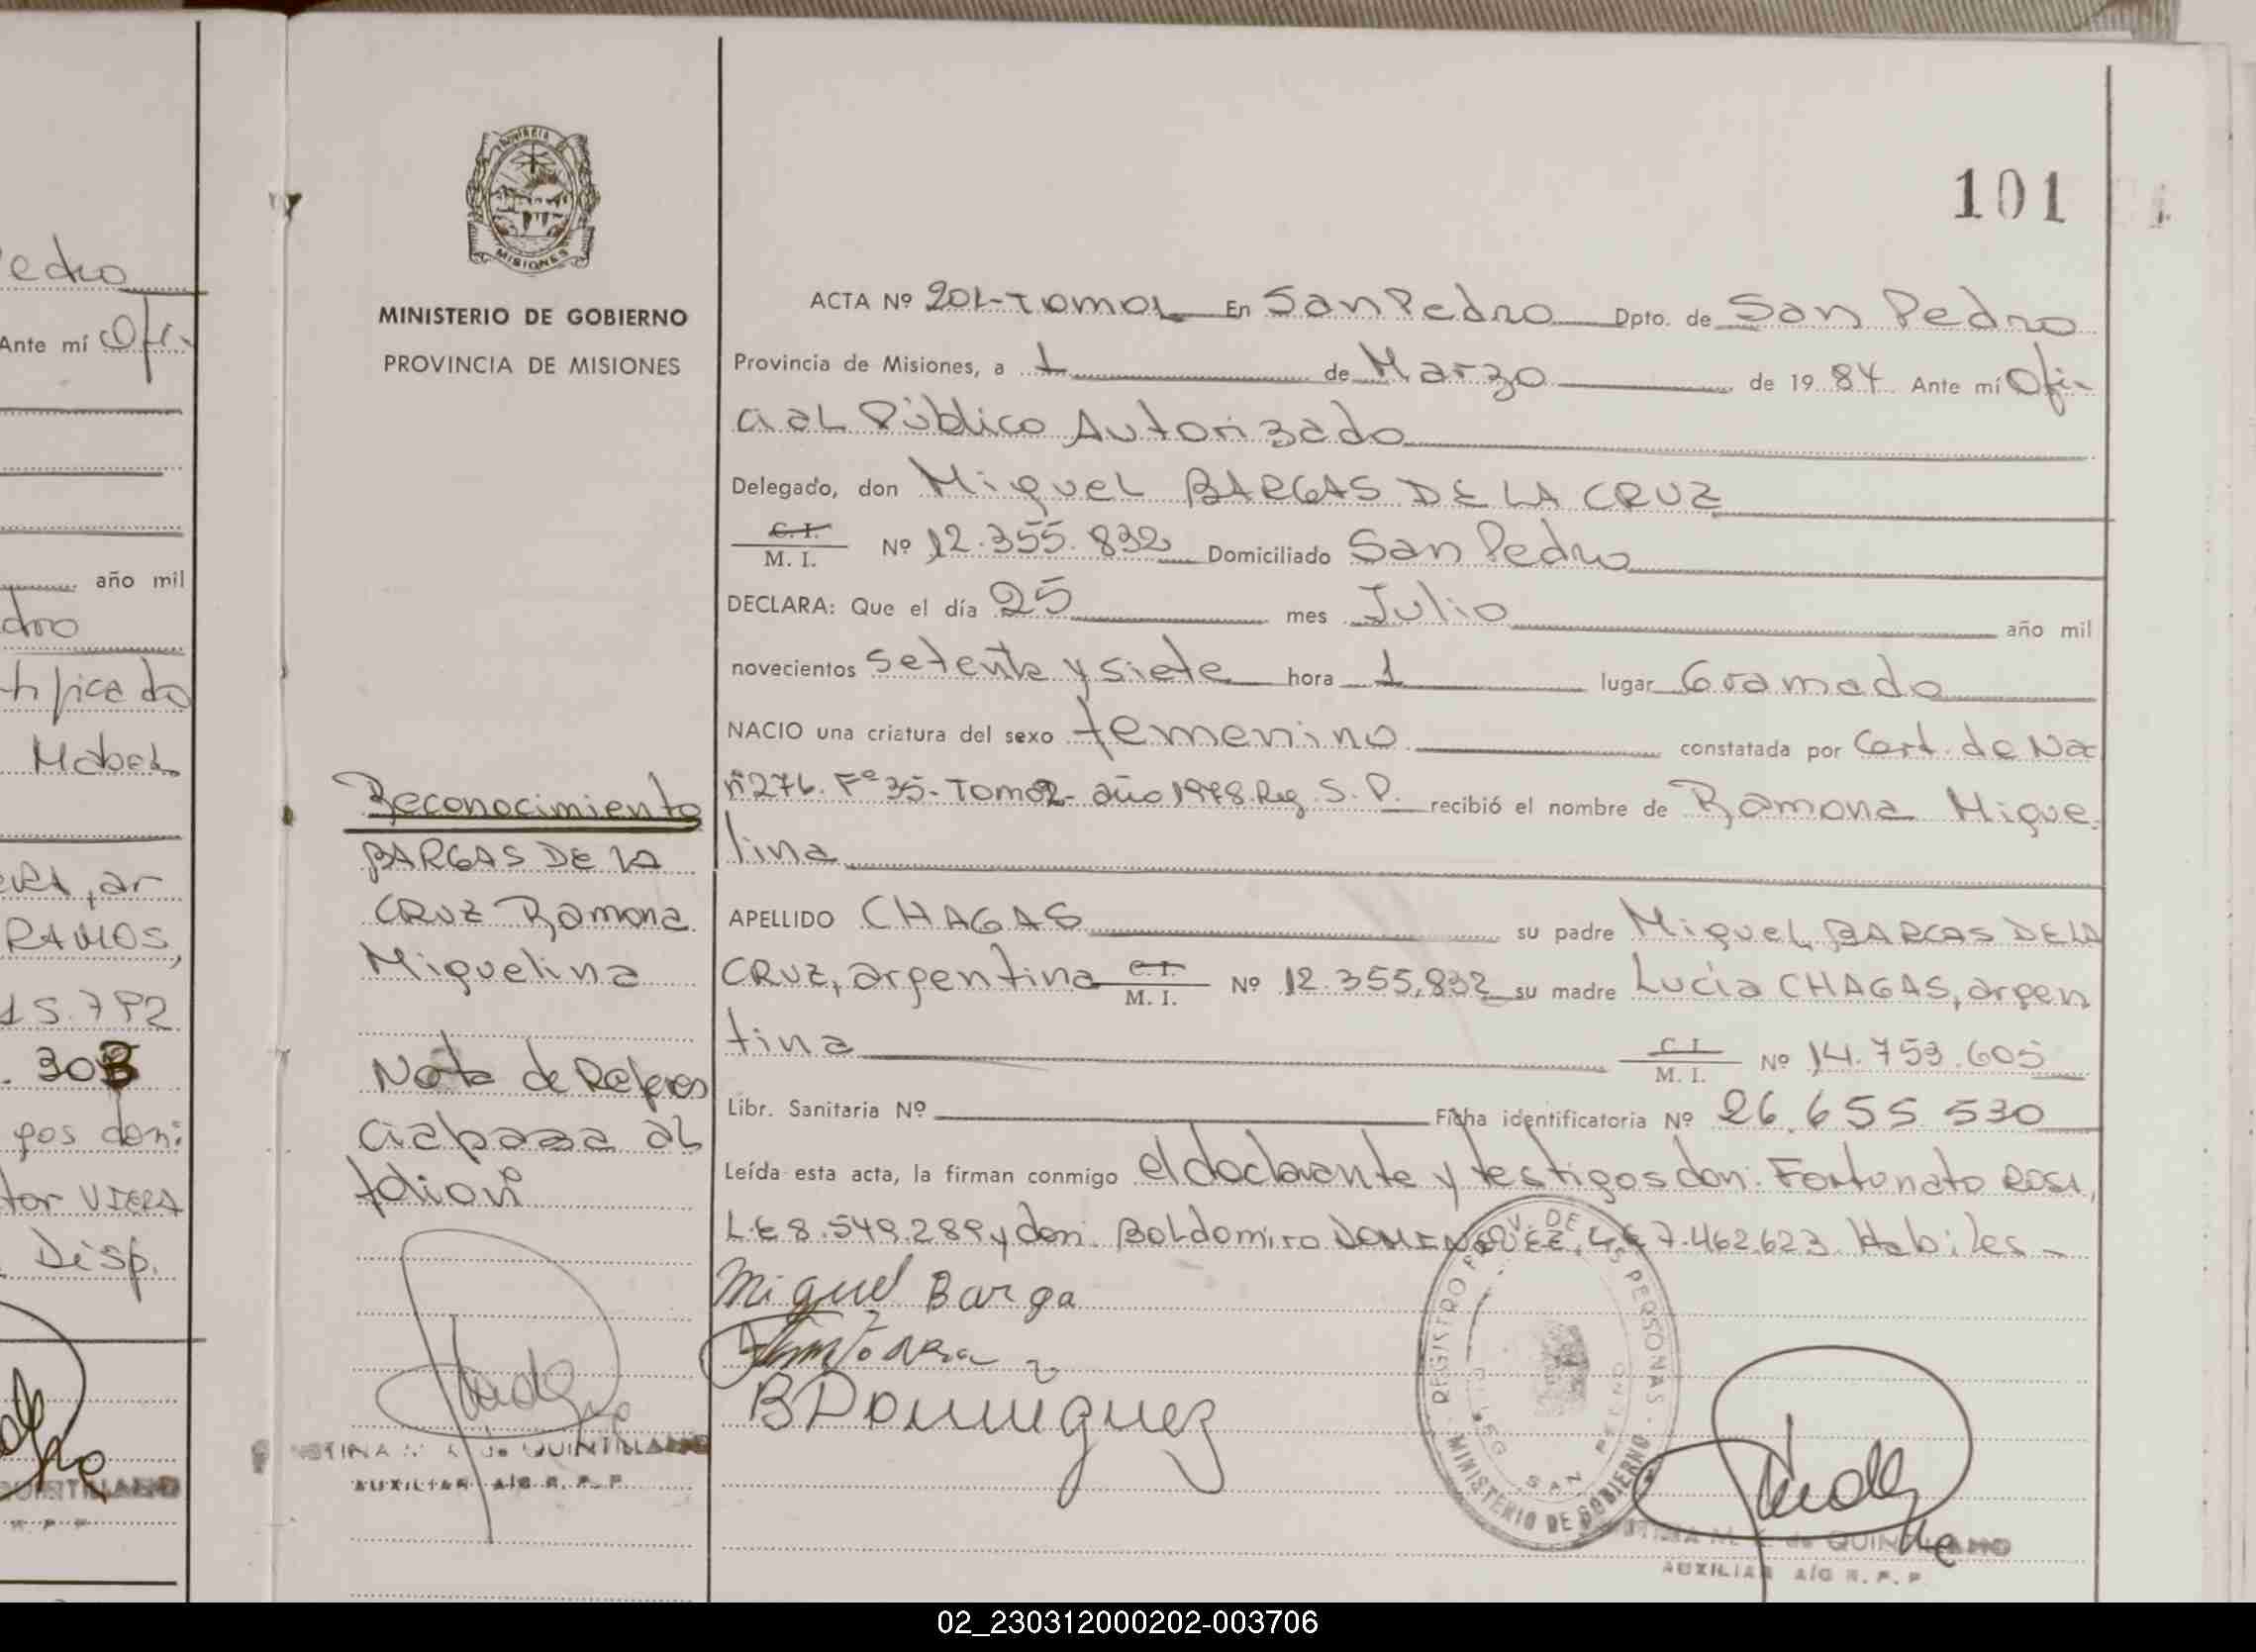 edro
Ante mí Ofi-
año mil
dro
tificado
Mabel
ar
RAMOS,
15.792
. 303
gos don:
tor VIERA
Disp.
PROVINCIA DE
MISIONES
MINISTERIO DE GOBIERNO
PROVINCIA DE MISIONES
Reconocimiento
BARGAS DE LA
CRUZ Ramona
Miguelina
Nota de Referen
cia pasa al
folio nº
de QUINTILLANO
AUXILIAR A/C R. P. P.
101
ACTA Nº 201-Tomo1 En San Pedro Dpto. de San Pedro
Provincia de Misiones, a 1 de Marzo de 1984 Ante mí Ofi-
cial Público Autorizado
Delegado, don Miguel BARGAS DE LA CRUZ
C. I.
M. I. Nº 12.355.832 Domiciliado San Pedro
DECLARA: Que el día 25 mes Julio año mil
novecientos setenta y siete hora 1 lugar Gramado
NACIO una criatura del sexo femenino constatada por Cert. de Nac
nº276. Fº35- Tomo2- año 1978. Reg. S. P. recibió el nombre de Ramona Migue-
lina
APELLIDO CHAGAS su padre Miguel BARGAS DE LA
CRUZ, argentina C. I. M. I. Nº 12.355.832 su madre Lucía CHAGAS, argen
tina C. I. M. I. Nº 14.753.605
Libr. Sanitaria Nº Ficha identificatoria Nº 26.655.530
Leída esta acta, la firman conmigo el declarante y testigos don: Fortunato ROSA,
L.E 8.549.289 y don. Boldomiro DOMINGUEZ, L.E 7.462.623. Habiles-
Miguel Barga
B Dominguez
REGISTRO PROV. DE LAS PERSONAS
SAN PEDRO
MINISTERIO DE GOBIERNO
de QUINTILLANO
AUXILIAR A/C R. P. P
02_230312000202-003706